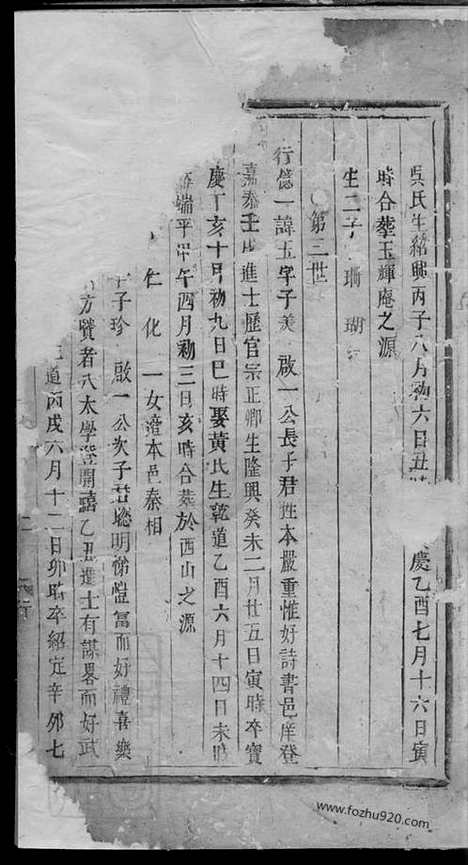 吳氏生紹興丙子八月初六日丑時 慶乙酉七月十六日寅
時合葬玉輝庵之源
生二子 珊 瑚
○第三世
行億一諱玉字子美 啟一公長子君性本嚴重惟好詩書邑庠登
嘉泰壬戌進士歷官宗正卿生隆興癸未二月廿五日寅時卒寶
慶丁亥十月初九日巳時娶黃氏生乾道乙酉六月十四日未時
端平甲午四月初三日亥時合葬於西山之源
仁化 一女適本邑秦相
字子珍 啟一公次子君聰明愷富而好禮喜樂
方賢者入太學登開禧乙丑進士有謀畧而好武
道丙戌六月十二日卯時卒紹定辛卯七
www.fozhu920.com